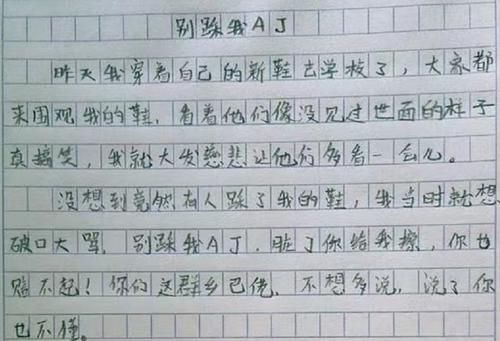 别踩我AJ
昨天我穿着自己的新鞋去学校了，大家都
来围观我的鞋，看着他们像没见过世面的样子
真搞笑，我就大发慈悲让他们多看一会儿。
没想到竟然有人踩了我的鞋，我当时就想
破口大骂，别踩我AJ，脏了你给我擦，你也
赔不起！你们这群乡巴佬，不想多说，说了你
也不懂。